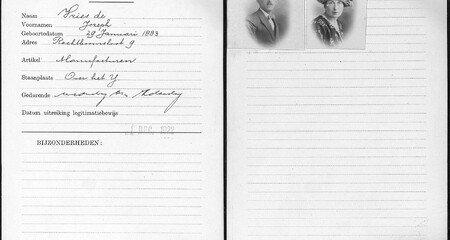 Naam Vries de
Voornamen Joseph
Geboortedatum 29 Januari 1883
Adres Rechtboomsloot 9
Artikel Manufacturen
Staanplaats Over het Y
Gedurende maandag en Zaterdag
Datum uitreiking legitimatiebewijs
DEC. 1922
BIJZONDERHEDEN: